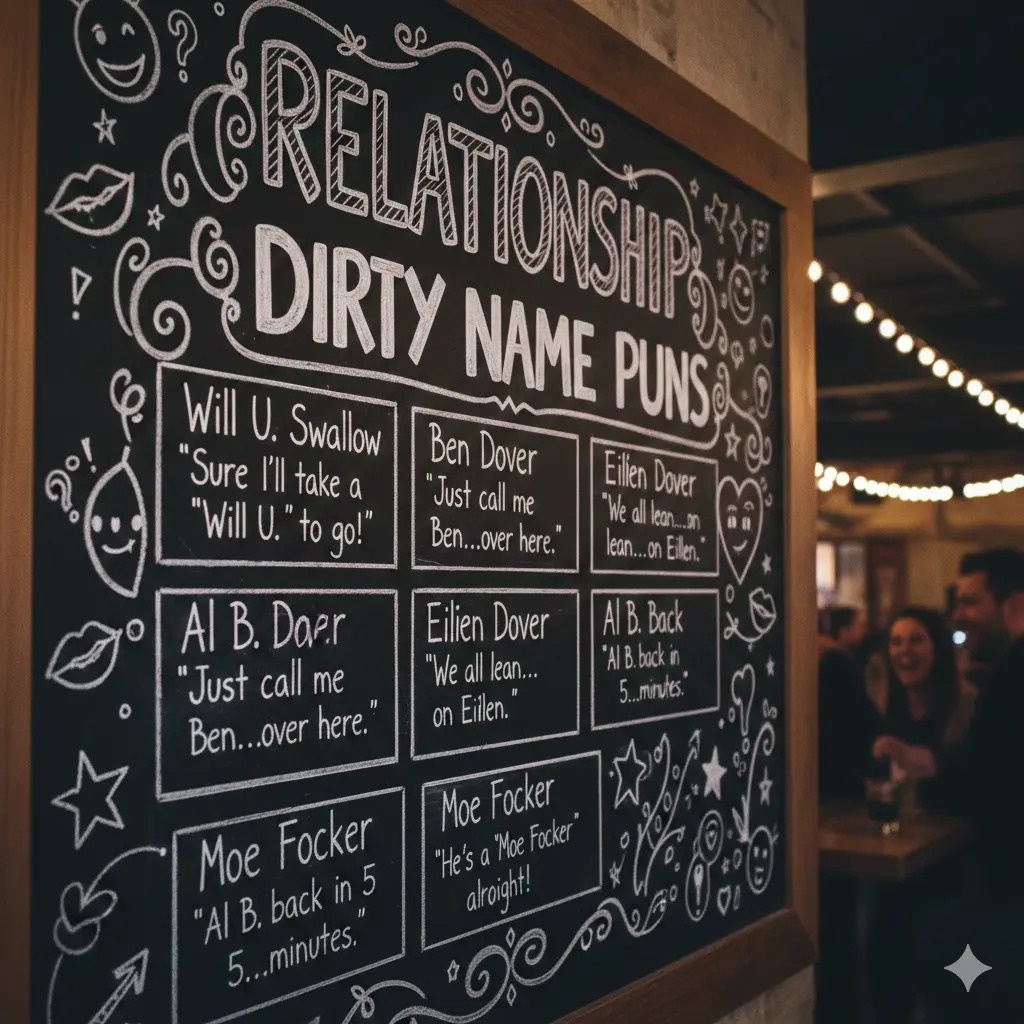 RELATIONSHIP
DIRTY NAME PUNS
Will U. Swallow
"Sure I'll take a
"Will U." to go!"
Ben Dover
"Just call me
Ben...over here."
Eilien Dover
"We all lean....on
lean...on Eillen."
Al B.
"Just call me
Ben...over here."
Eilien Dover
"We all lean...
on Eiilen."
Al B. Back
"Al B. back in
5...minutes."
Moe Focker
"Al B. back in 5
5...minutes."
Moe Focker
"He's a "Moe Focker"
alroight!